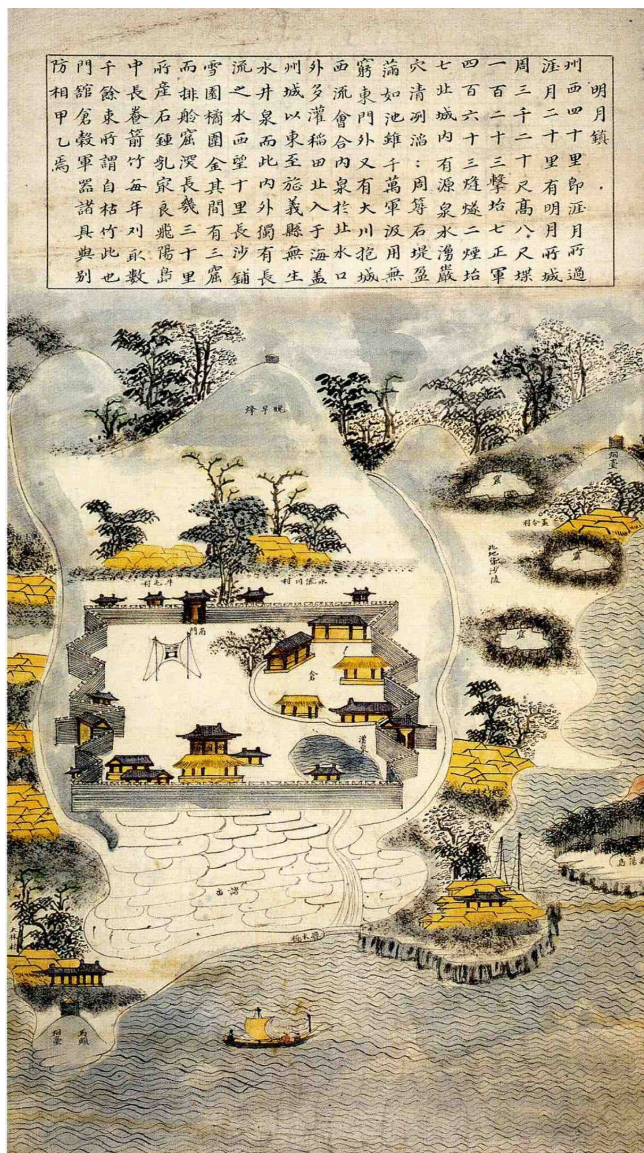 明月鎭
州西四十里即涯月所過
涯月二十里有明月所城
周三千二十尺高八尺堞
一百二十三擊垍七正軍
四百六十三烽燧二煙垍
七北城內有源泉水湧巖
穴清冽滔:周等石堤盈
滿如池雖千萬軍汲用無
窮東門外又有大川抱城
西流會合內泉於北水口
外多灌稲田北入于海盖
州城以東至旌義縣無生
水井泉而此內外獨有長
流之水西望十里長沙鋪
雪園橘園金其間有三窟
而排舲窟深長幾三十里
所産石鍾乳家良飛陽島
中長養箭竹每年刈取數
千餘束所謂自枯竹此也
門舘倉穀軍器諸具與別
防相甲乙焉
晚早烽
窟
烟臺
窟
窟
水流川村
南門
倉
馬頭
烟臺